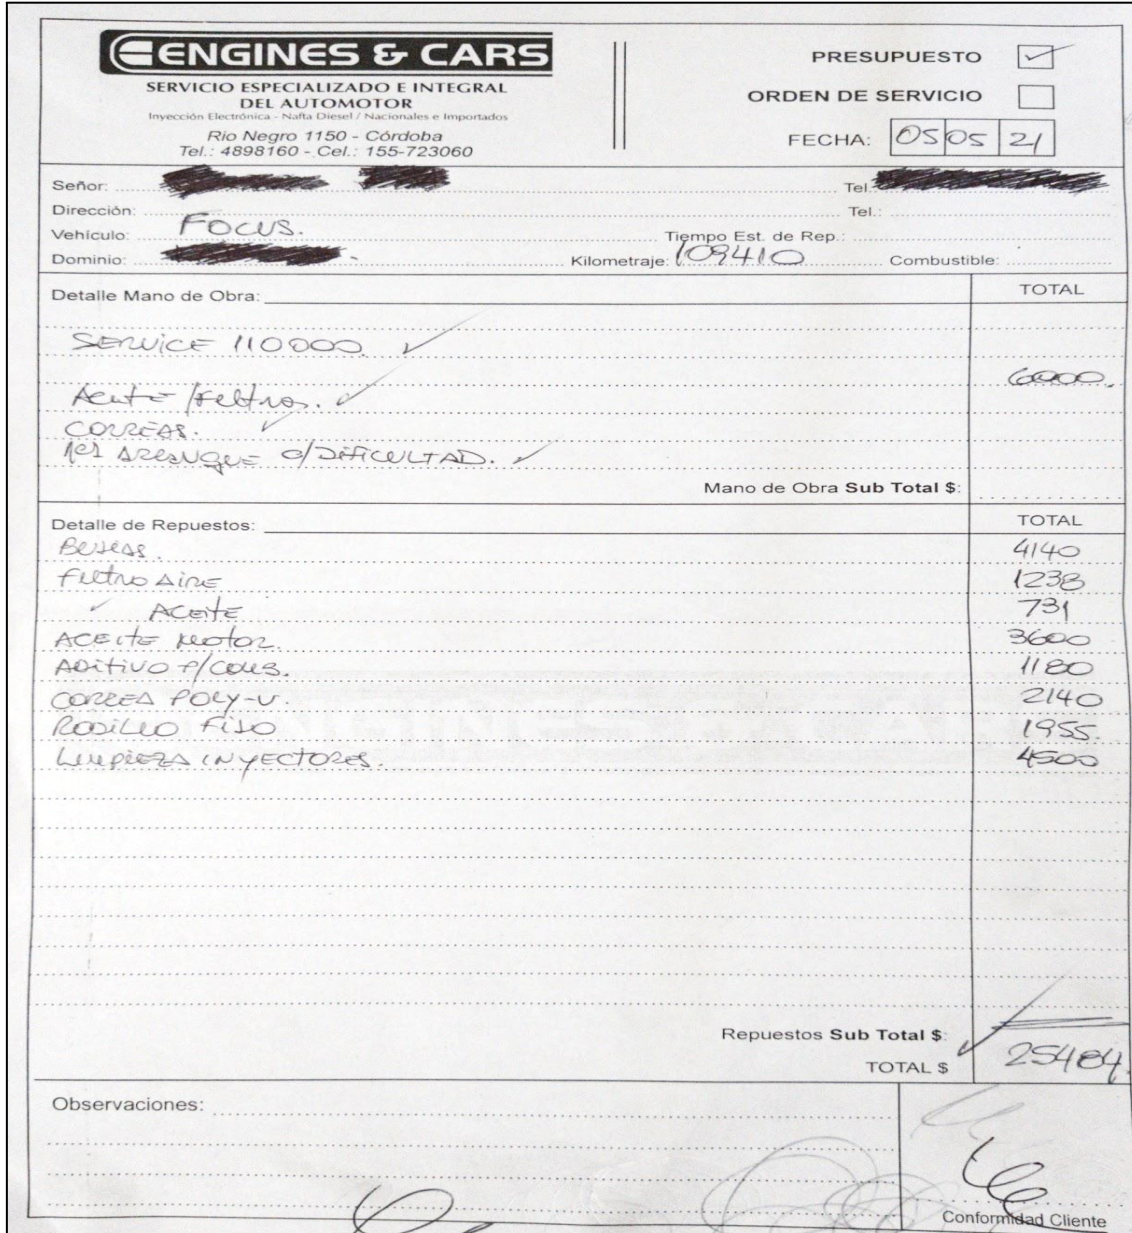 ENGINES & CARS
SERVICIO ESPECIALIZADO E INTEGRAL
DEL AUTOMOTOR
Inyección Electrónica - Nafta Diesel / Nacionales e Importados
Río Negro 1150 - Córdoba
Tel.: 4898160 - Cel.: 155-723060
PRESUPUESTO
ORDEN DE SERVICIO
FECHA: 05 05 21
Señor: Tel.
Dirección: Tel.:
Vehículo: FOCUS. Tiempo Est. de Rep.:
Dominio: Kilometraje: 109410 Combustible:
Detalle Mano de Obra: TOTAL
SERVICE 110000.
6000.
Aceite/Filtros.
CORREAS.
ARRANQUE C/DIFICULTAD.
Mano de Obra Sub Total $:
Detalle de Repuestos: TOTAL
BUJIAS. 4140
Filtro AIRE 1238
ACEITE 731
ACEITE MOTOR. 3600
ADITIVO P/COMB. 1180
CORREA POLY-V. 2140
RODILLO FIJO 1955
LIMPIEZA INYECTORES. 4500
Repuestos Sub Total $:
TOTAL $ 25484.
Observaciones:
Conformidad Cliente